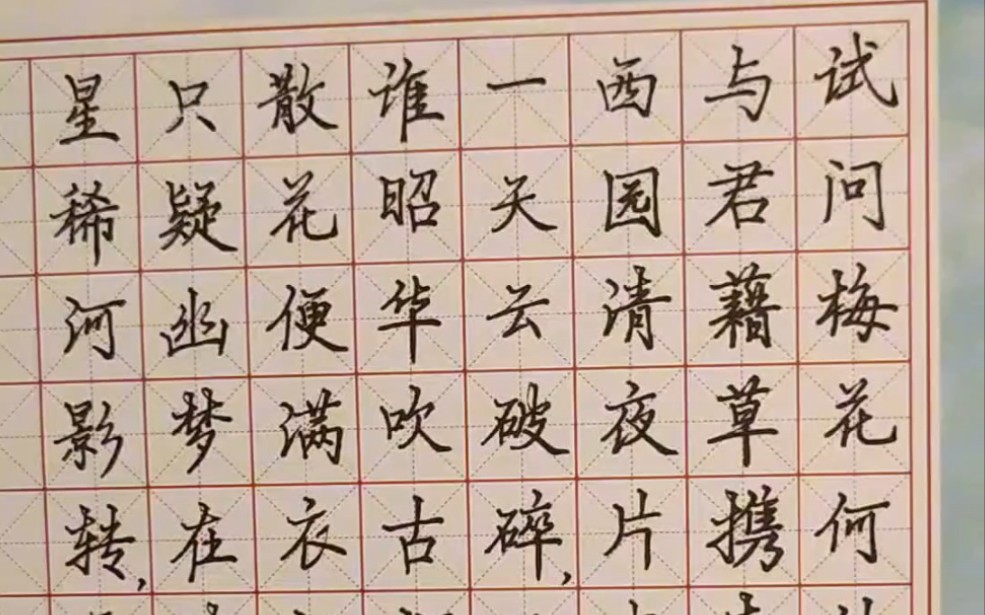 试问梅花何
与君藉草携
西园清夜片
一天云破碎,
谁昭华吹古
散花便满衣
只疑幽梦在
星稀河影转,